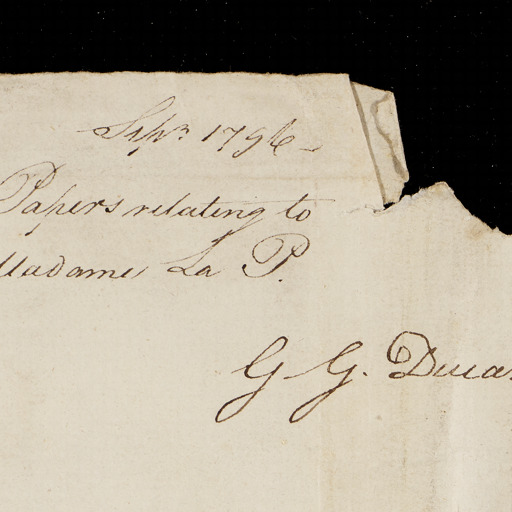 Sepr. 1796
Papers relating to
Madame La P.
G G. Ducar